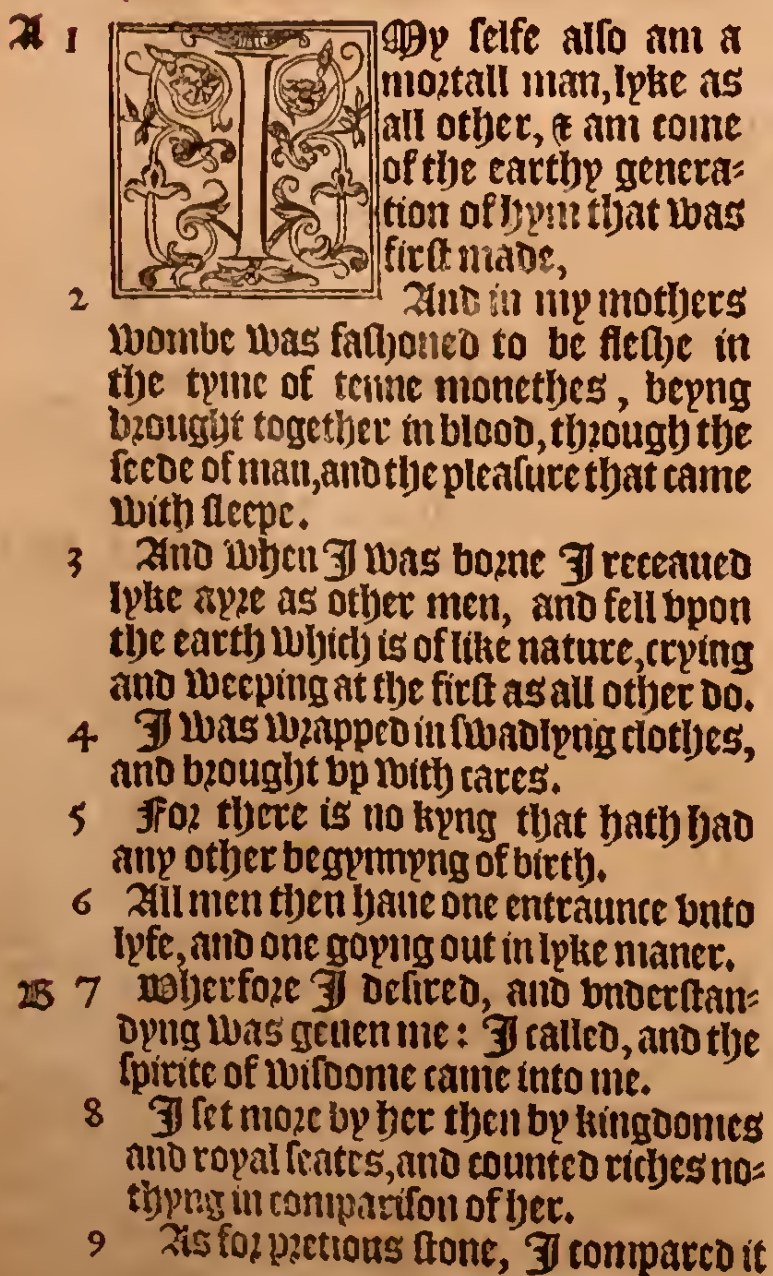 A 1 I My ſelfe alſo am a
moꝛtall man, lyke as
all other, & am come
of the earthy genera⸗
tion of hym that was
firſt made,
2 And in my mothers
wombe was faſhoned to be fleſhe in
the tyme of tenne monethes, beyng
bꝛought together in blood, thꝛough the
ſeede of man, and the pleaſure that came
with ſleepe.
3 And when I was boꝛne I receaued
lyke ayꝛe as other men, and fell vpon
the earth which is of like nature, crying
and weeping at the firſt as all other do.
4 I was wꝛapped in ſwadlyng clothes,
and bꝛought vp with cares.
5 Foꝛ there is no kyng that hath had
any other begynnyng of birth.
6 All men then haue one entraunce vnto
lyfe, and one goyng out in lyke maner.
B 7 Wherfoꝛe I deſired, and vnderſtan⸗
dyng was geuen me: I called, and the
ſpirite of wiſdome came into me.
8 I ſet moꝛe by her then by kingdomes
and royal ſeates, and counted riches no⸗
thyng in compariſon of her.
9 As foꝛ pꝛetious ſtone, I compared it